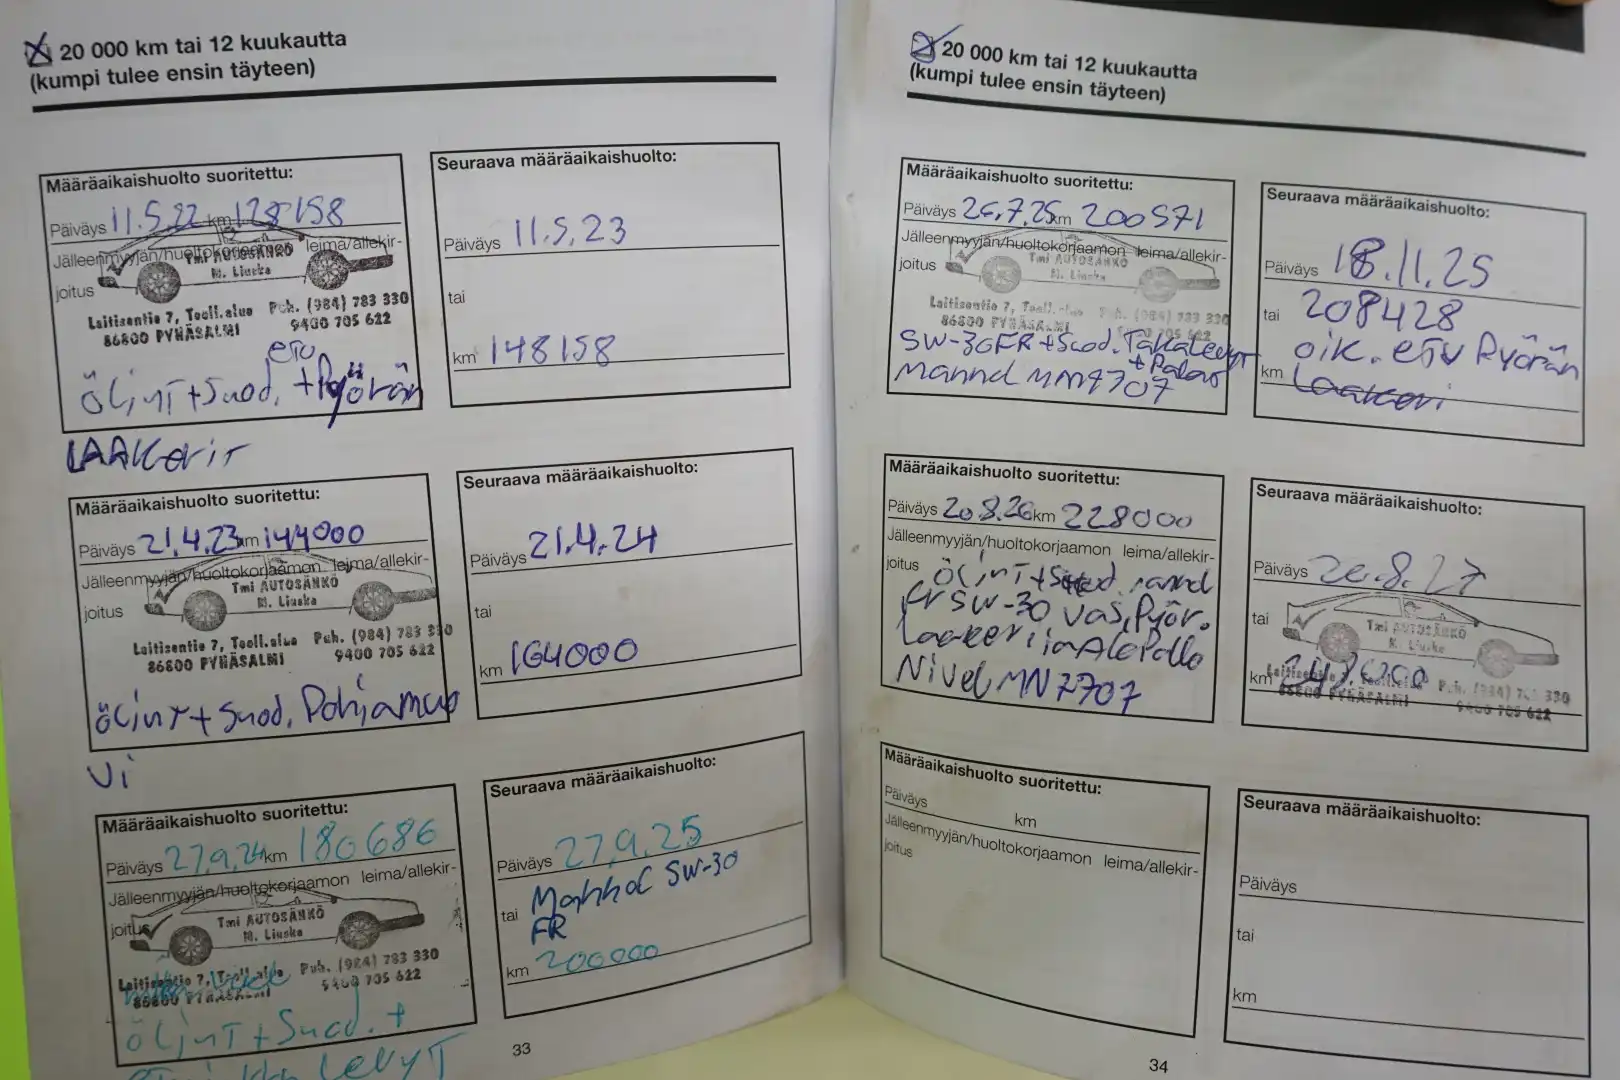 20 000 km tai 12 kuukautta
(kumpi tulee ensin täyteen)
Määräaikaishuolto suoritettu:
Päiväys 11.5.22 km 128158
Jälleenmyyjän/huoltokorjaamon leima/allekir-
joitus
Tmi AUTOSÄNKÖ
M. Liuska
Laitisentie 7, Teoll.alue Puh. (984) 783 330
86800 PYHÄSALMI 9400 705 622
öljyT+Suod. + eTu Pyörän
LAAKerit
Seuraava määräaikaishuolto:
Päiväys 11.5.23
tai
km 148158
Määräaikaishuolto suoritettu:
Päiväys 21.4.23 km 144000
Jälleenmyyjän/huoltokorjaamon leima/allekir-
joitus
Tmi AUTOSÄNKÖ
M. Liuska
Laitisentie 7, Teoll.alue Puh. (984) 783 330
86800 PYHÄSALMI 9400 705 622
öljynT + Suod. Pohjamuo
vi
Seuraava määräaikaishuolto:
Päiväys 21.4.24
tai
km 164000
Määräaikaishuolto suoritettu:
Päiväys 27.9.24 km 180686
Jälleenmyyjän/huoltokorjaamon leima/allekir-
joitus
Tmi AUTOSÄNKÖ
M. Liuska
Laitisentie 7, Teoll.alue Puh. (984) 783 330
86800 PYHÄSALMI 9400 705 622
öljynT + Suod. +
LevyT
Seuraava määräaikaishuolto:
Päiväys 27.9.25
tai Mannol 5W-30
FR
km 200000
33
20 000 km tai 12 kuukautta
(kumpi tulee ensin täyteen)
Määräaikaishuolto suoritettu:
Päiväys 26.7.25 km 200571
Jälleenmyyjän/huoltokorjaamon leima/allekir-
joitus
Tmi AUTOSÄNKÖ
M. Liuska
Laitisentie 7, Teoll.alue Puh. (984) 783 330
86800 PYHÄSALMI 9400 705 622
5W-30FR+Suod. TakaLevyT
+ Palat
Mannol MN7707
Seuraava määräaikaishuolto:
Päiväys 18.11.25
tai 208428
oik. eTu Pyörän
km Laakeri
Määräaikaishuolto suoritettu:
Päiväys 20.8.26 km 228000
Jälleenmyyjän/huoltokorjaamon leima/allekir-
joitus öljynT+Suod. mannol
Fr 5W-30 Vas. Pyör.
Laakeri ja AlaPallo
Nivel MN7707
Seuraava määräaikaishuolto:
Päiväys 20.8.27
tai
Tmi AUTOSÄNKÖ
M. Liuska
km 248000
Laitisentie 7, Teoll.alue Puh. (984) 783 330
86800 PYHÄSALMI 9400 705 622
Määräaikaishuolto suoritettu:
Päiväys km
Jälleenmyyjän/huoltokorjaamon leima/allekir-
joitus
Seuraava määräaikaishuolto:
Päiväys
tai
km
34